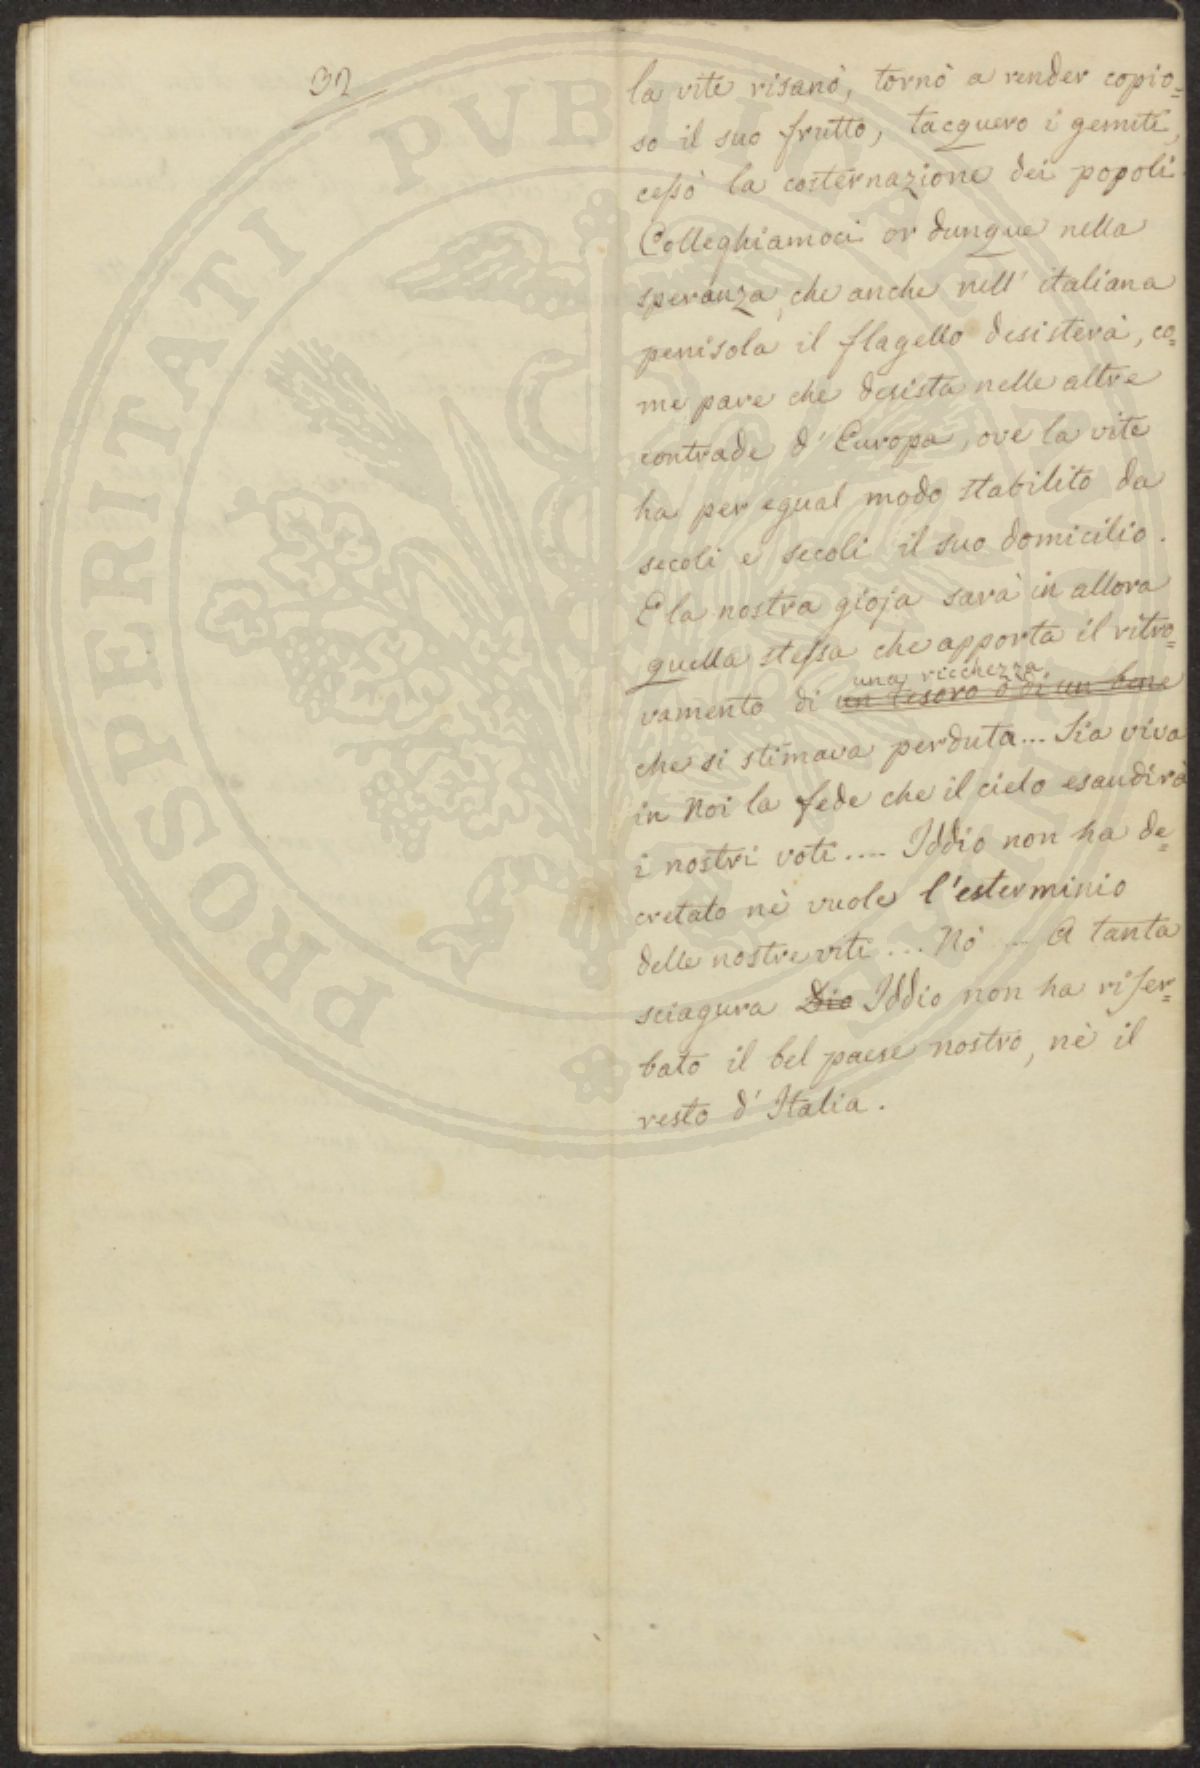 32
la vite risanò, tornò a render copio=
so il suo frutto, tacquero i gemiti,
ceſsò la costernazione dei popoli.
Colleghiamoci or dunque nella
speranza, che anche nell' italiana
penisola il flagello desisterà, co=
me pare che desista nelle altre
contrade d' Europa, ove la vite
ha per egual modo stabilito da
secoli e secoli il suo domicilio.
E la nostra gioja sarà in allora
quella steſsa che apporta il ritro=
una ricchezza
vamento di un tesoro o di un bene
che si stimava perduta... Sia viva
in Noi la fede che il cielo esaudirà
i nostri voti.... Iddio non ha de=
cretato nè vuole l'esterminio
delle nostre viti... Nò... A tanta
sciagura Dio Iddio non ha riser=
bato il bel paese nostro, nè il
resto d' Italia.
PROSPERITATI PVBLICAE